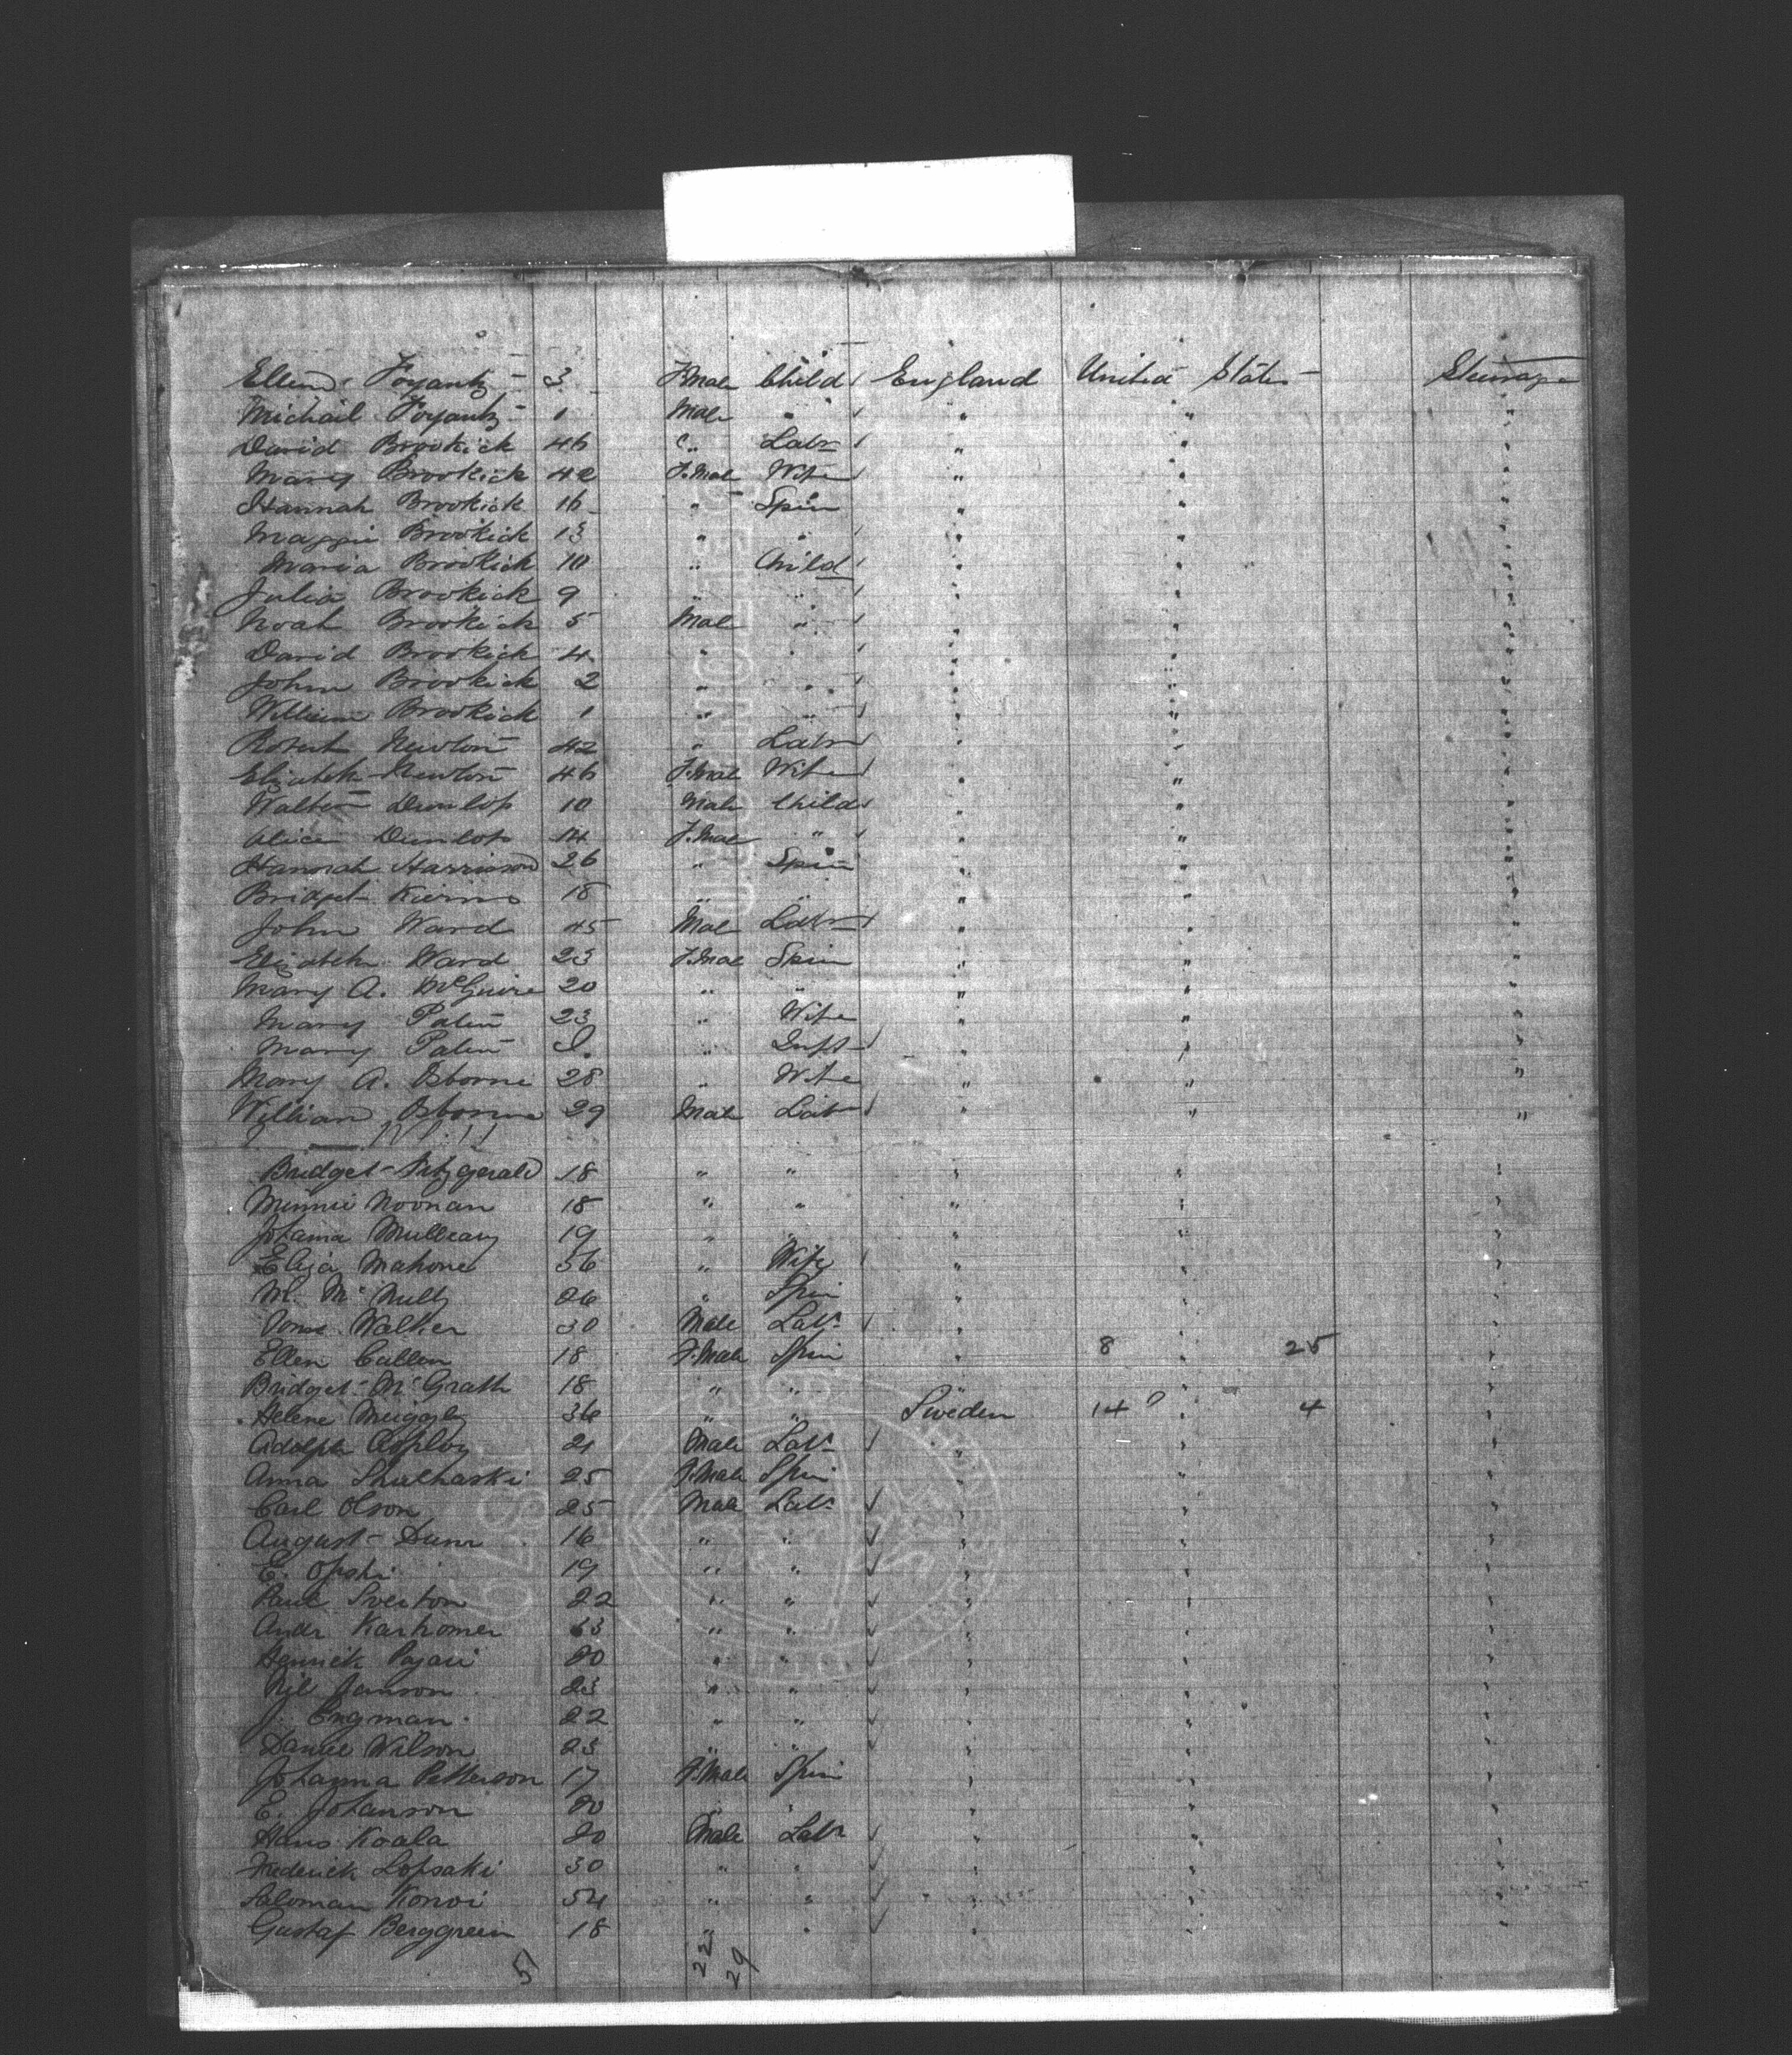 Ellen Foyantz 3 F.Male Child England United States Steerage
Michail Foyantz 1 Male " " " "
David Brookick 46 " Labr " " "
Mary Brookick 42 F.Male Wife " " "
Hannah Brookick 16 " Spin " " "
Maggie Brookick 13 " " " " "
Maria Brookick 10 " Child " " "
Julia Brookick 9 " " " " "
Noah Brookick 5 Male " " " "
David Brookick 4 " " " " "
John Brookick 2 " " " " "
William Brookick 1 " " " " "
Robert Newton 42 " Labr " " "
Elizabeth Newton 46 F.Male Wife " " "
Walter Dunlop 10 Male Child " " "
Alice Dunlop 14 F.Male " " " "
Hannah Harrison 26 " Spin " " "
Bridget Kierns 18 " " " " "
John Ward 45 Male Labr " " "
Elizabeth Ward 23 F.Male Spin " " "
Mary A. McGuire 20 " " " " "
Mary Palin 23 " Wife " " "
Mary Palin I. " Inft " " "
Mary A. Osborne 28 " Wife " " "
William Osborne 29 Male Labr " " "
Bridget Fitzgerald 18 " " " " "
Minnie Noonan 18 " " " " "
Johanna Mulleary 19 " " " " "
Eliza Mahone 36 " Wife " " "
M. McNully 26 " Spin " " "
Walker 30 Male Labr " " "
Ellen Cullen 18 F.Male Spin " 8 " 25 "
Bridget McGrath 18 " " " " "
Helene 36 " " Sweden 14 " 4 "
Adolph 21 Male Labr " " "
Anna 25 F.Male Spin " " "
Carl Olson 25 Male Labr " " "
August Dunn 16 " " " " "
E. Opski 19 " " " " "
Paul Sverton 22 " " " " "
Andr Karhomer 33 " " " " "
Henrick Pajari 20 " " " " "
Nil Janson 23 " " " " "
J. Engman 22 " " " " "
Daniel Wilson 23 " " " " "
Johanna Petterson 17 F.Male Spin " " "
E. Johanson 20 " " " " "
Hans Koala 20 Male Labr " " "
Frederick Lopsaki 30 " " " " "
Saloman Konvi 54 " " " " "
Gustaf Berggreen 18 " " " " "
5 22 29